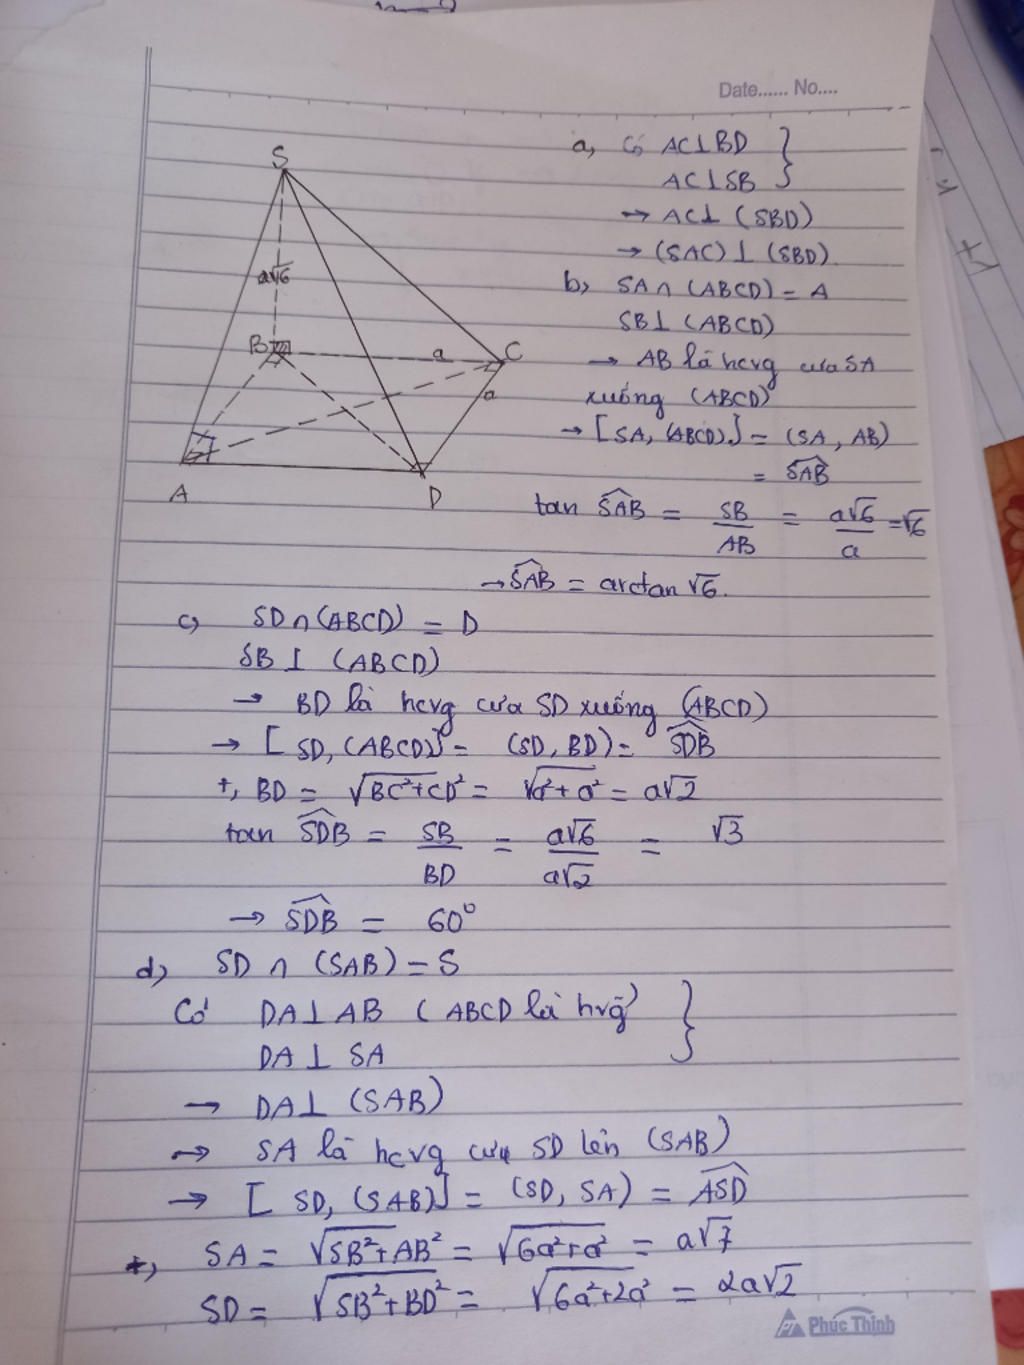 Date...... No....
S
a√6
B
a
C
a
A
D
a, Có AC⊥BD }
AC⊥SB
→ AC⊥ (SBD)
→ (SAC)⊥(SBD).
b, SA∩(ABCD)=A
SB⊥(ABCD)
→ AB là hcvg của SA
xuống (ABCD)
→ [SA,(ABCD)] = (SA, AB)
= \widehat{SAB}
tan \widehat{SAB} = SB/AB = a√6/a = √6
→ \widehat{SAB} = arctan √6.
c, SD∩(ABCD) = D
SB⊥(ABCD)
→ BD là hcvg của SD xuống (ABCD)
→ [SD,(ABCD)] = (SD, BD) = \widehat{SDB}
+, BD = √(BC²+CD²) = √(a²+a²) = a√2
tan \widehat{SDB} = SB/BD = a√6/a√2 = √3
→ \widehat{SDB} = 60°
d, SD ∩ (SAB) = S
Có DA⊥AB (ABCD là hvg) }
DA⊥SA
→ DA⊥(SAB)
→ SA là hcvg của SD lên (SAB)
→ [SD,(SAB)] = (SD, SA) = \widehat{ASD}
+, SA = √(SB²+AB²) = √(6a²+a²) = a√7
SD = √(SB²+BD²) = √(6a²+2a²) = 2a√2
Phúc Thịnh